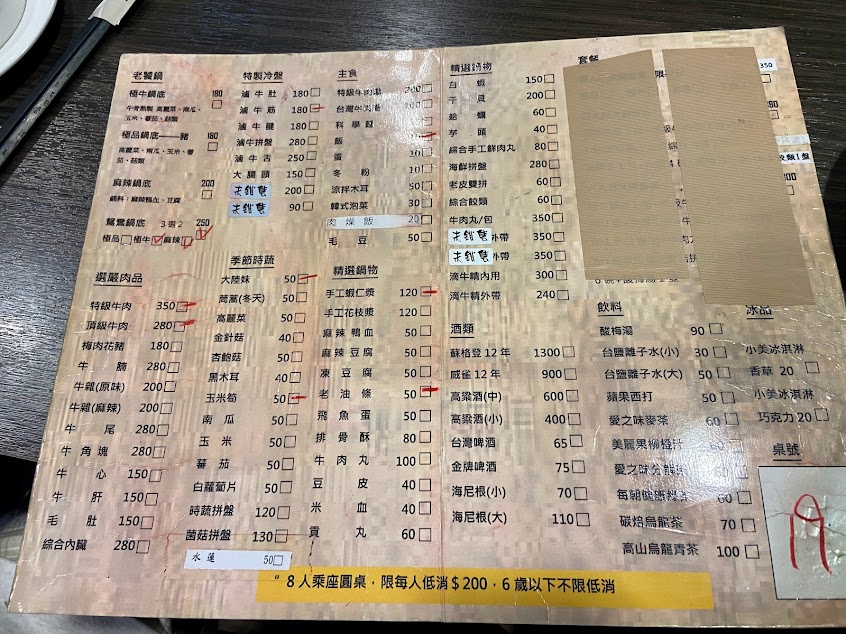 老饕鍋
極牛鍋底 180
牛骨熬製 高麗菜、南瓜、
玉米、蕃茄、菇類
極品鍋底——豬 180
高麗菜、南瓜、玉米、蕃
茄、菇類
麻辣鍋底 200
鍋料：麻辣鴨血、豆腐
鴛鴦鍋底 3選2 250
極品 極牛 麻辣
選嚴肉品
特級牛肉 350
頂級牛肉 280
梅肉花豬 180
牛腩 280
牛雜(原味) 200
牛雜(麻辣) 200
牛尾 280
牛角塊 280
牛心 150
牛肝 150
毛肚 150
綜合內臟 280
特製冷盤
滷牛肚 180
滷牛筋 180
滷牛腱 180
滷牛拼盤 280
滷牛舌 250
大腸頭 150
未銷售 200
未銷售 90
季節時蔬
大陸妹 50
茼蒿(冬天) 50
高麗菜 50
金針菇 40
杏鮑菇 50
黑木耳 40
玉米筍 50
南瓜 50
玉米 50
蕃茄 50
白蘿蔔片 50
時蔬拼盤 120
菌菇拼盤 130
水蓮 50
主食
特級牛肉 200
台灣牛肉 100
科學麵
飯 10
蛋 10
冬粉 10
涼拌木耳 50
韓式泡菜 30
肉燥飯 20
毛豆 50
精選鍋物
手工蝦仁漿 120
手工花枝漿 120
麻辣鴨血 50
麻辣豆腐 50
凍豆腐 50
老油條 50
飛魚蛋 50
排骨酥 80
牛肉丸 100
豆皮 40
米血 40
貢丸 60
精選鍋物
白蝦 150
干貝 200
蛤蠣 60
芋頭 40
綜合手工鮮肉丸 80
海鮮拼盤 280
老皮雙拼 60
綜合餃類 60
牛肉丸/包 350
未銷售 外帶 350
未銷售 外帶 350
滴牛精內用 300
滴牛精外帶 240
酒類
蘇格登12年 1300
威雀12年 900
高粱酒(中) 600
高粱酒(小) 400
台灣啤酒 65
金牌啤酒 75
海尼根(小) 70
海尼根(大) 110
套餐
350
飲料
酸梅湯 90
台鹽離子水(小) 30
台鹽離子水(大) 50
蘋果西打 50
愛之味麥茶 60
美麗果柳橙汁 60
愛之味分解茶 60
每朝健康綠茶 60
碳焙烏龍茶 70
高山烏龍青茶 100
冰品
小美冰淇淋
香草 20
小美冰淇淋
巧克力 20
桌號
A
8人乘座圓桌，限每人低消$200，6歲以下不限低消